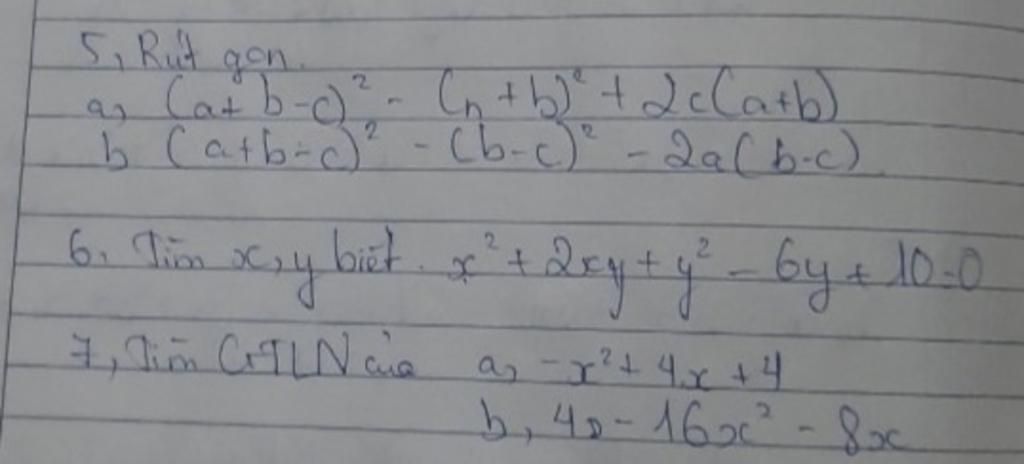 5, Rút gọn.
a, (a+b-c)² - (n+b)² + 2c(a+b)
b (a+b-c)² - (b-c)² - 2a(b-c)
6. Tìm x,y biết. x² + 2xy + y² - 6y + 10=0
7, Tìm GTLN của a, -x² + 4x + 4
b, - 16x² - 8x